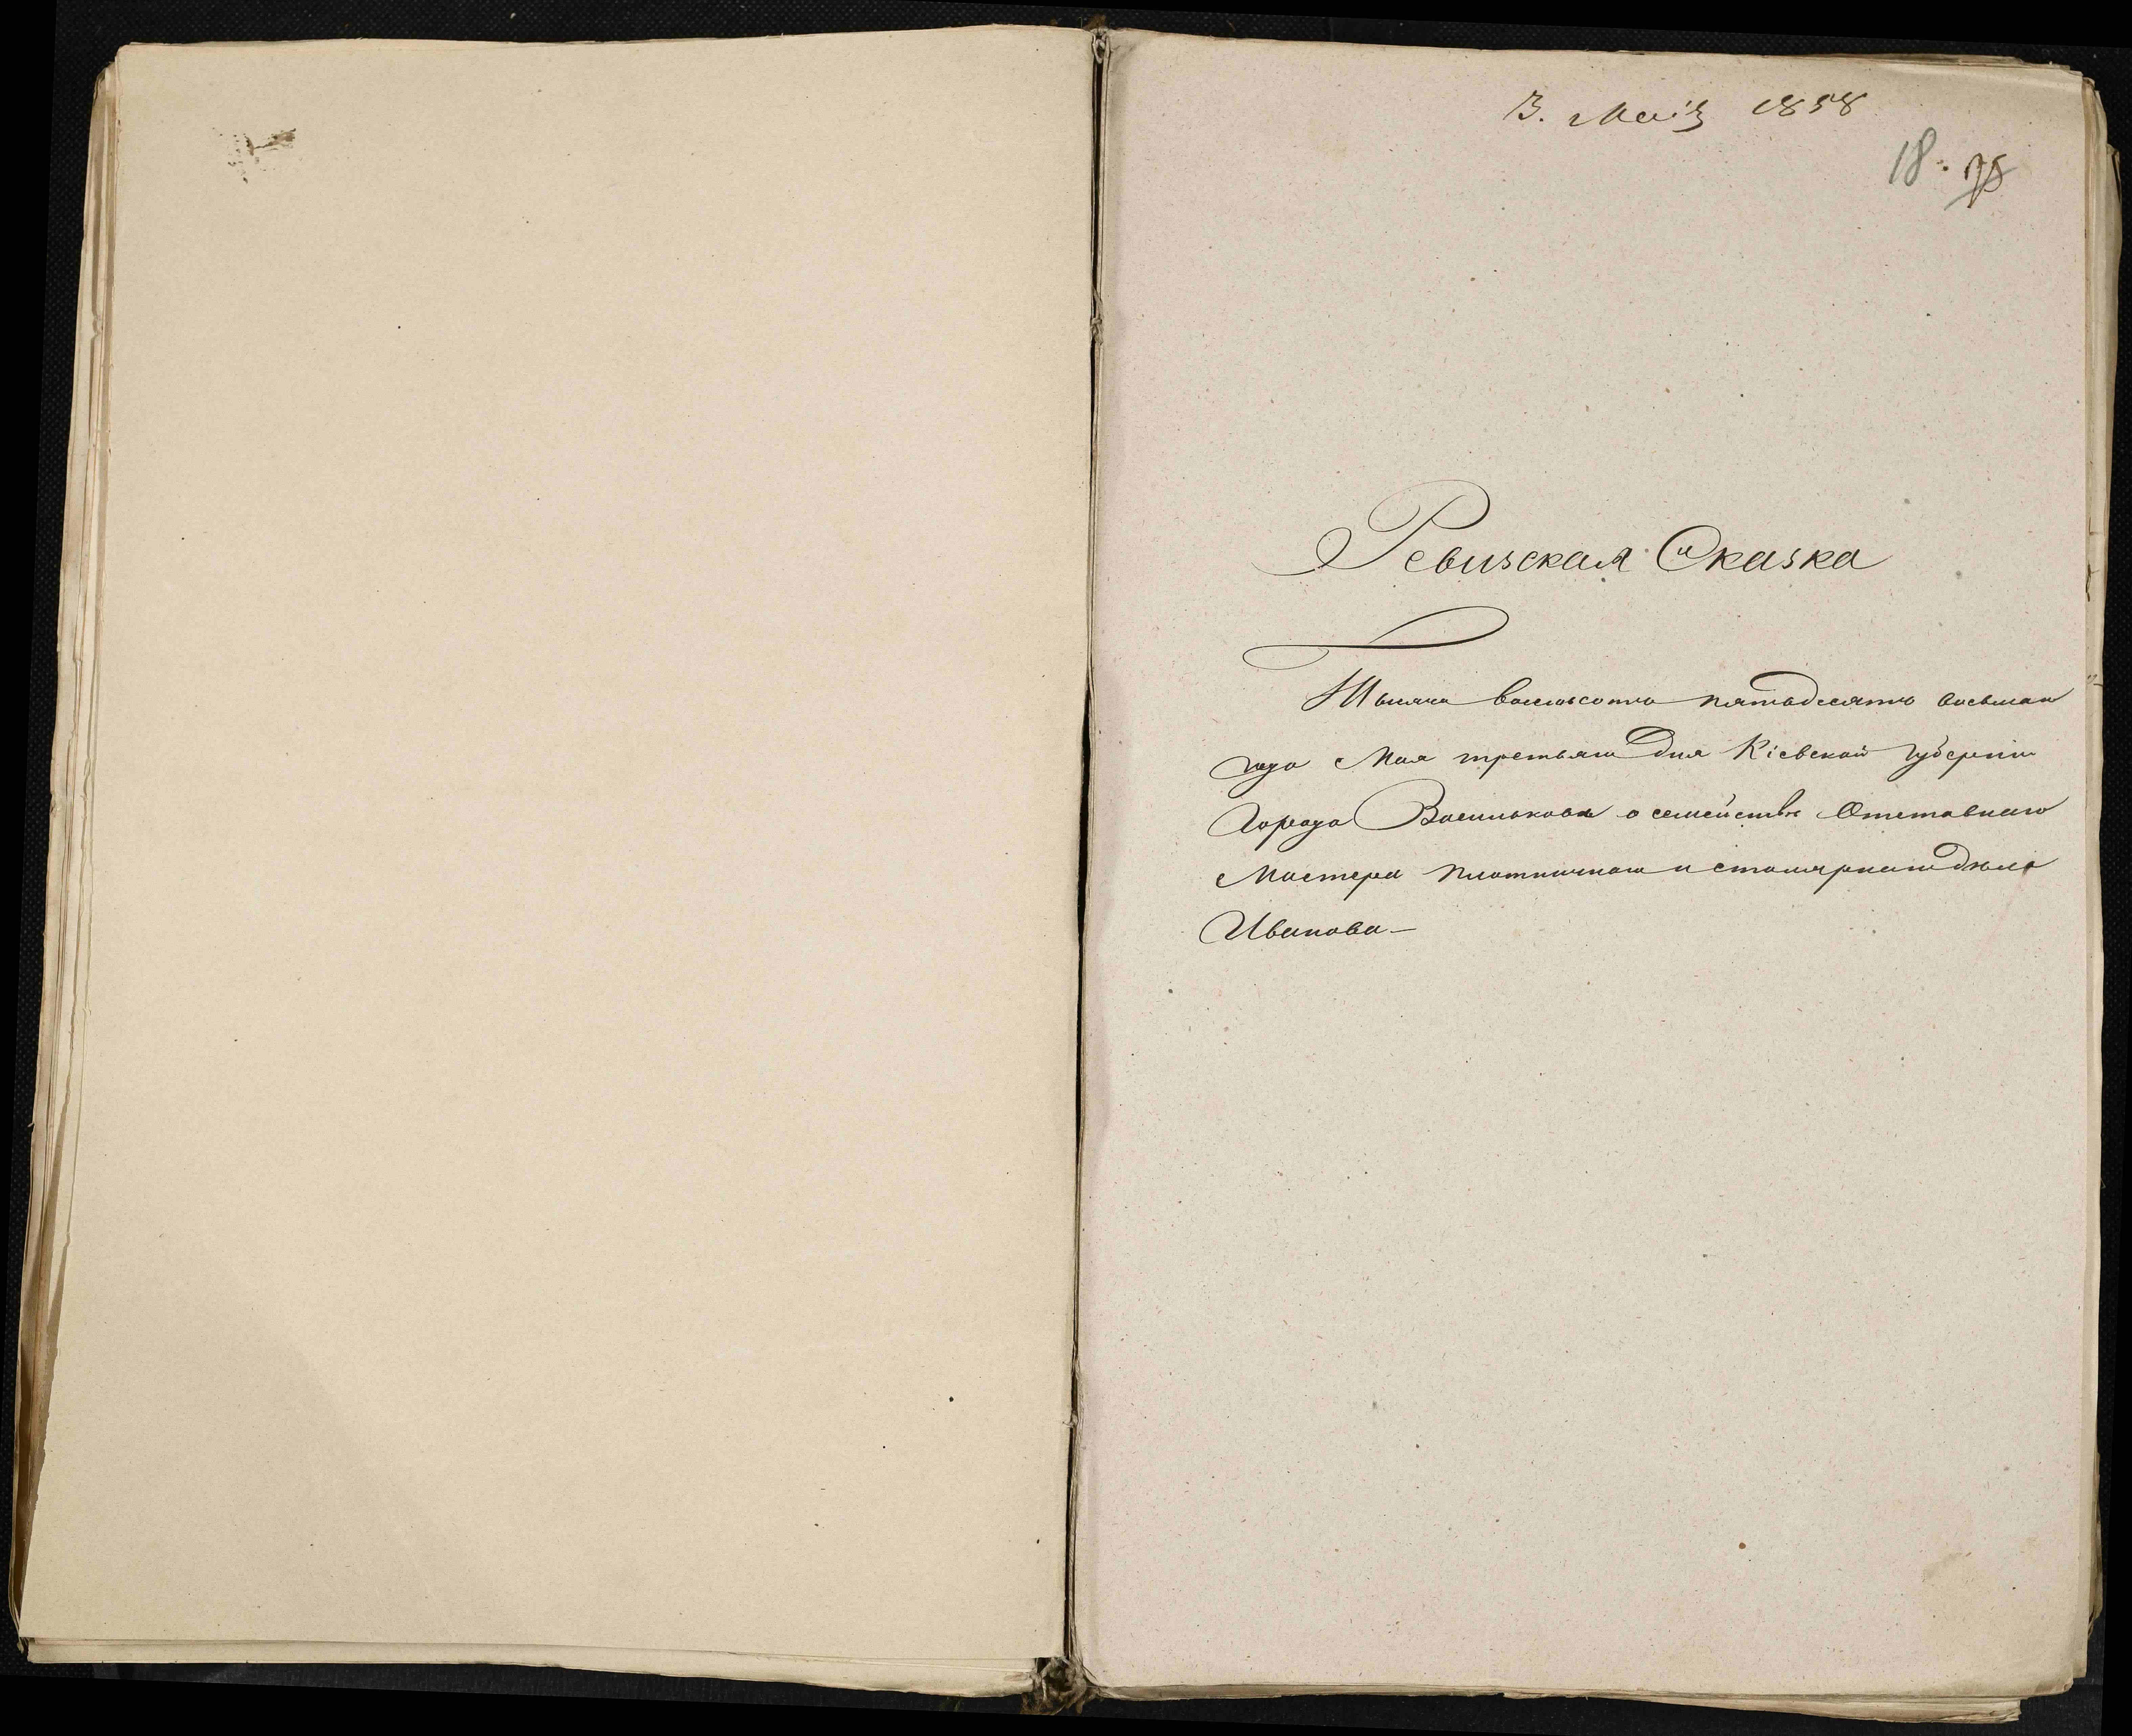 3. Маія 1858
18. 78
Ревизская Сказка
Тысяча восемьсотъ пятьдесятъ восьмаго
года Мая третьяго дня Кіевской губерніи
Города Василькова о семействѣ Отставнаго
Мастера плотничнаго и столярнаго дѣла
Иванова—